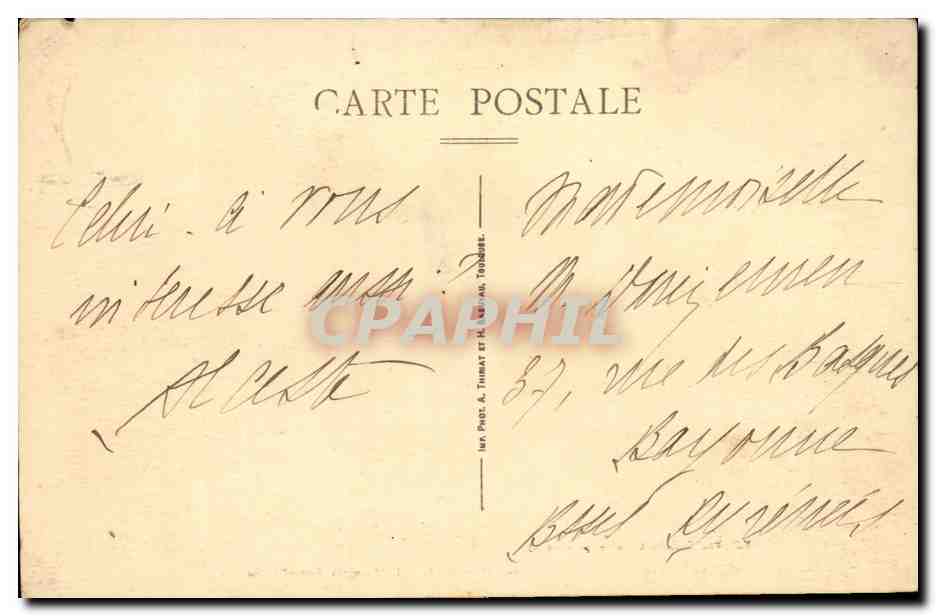 CARTE POSTALE
Celui-ci vous
intéresse aussi ?
Alceste
IMP. PHOT. A. THIRIAT ET H. BASUYAU, TOULOUSE.
Mademoiselle
M.
37, rue des Basques
Bayonne
Basses Pyrénées
CPAPHIL